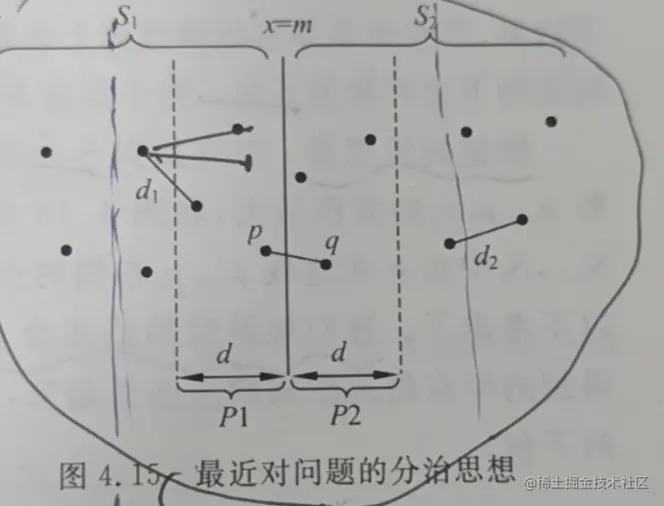 S1 x=m S2
d1
p q
d2
d d
P1 P2
图 4.15 最近对问题的分治思想
@稀土掘金技术社区